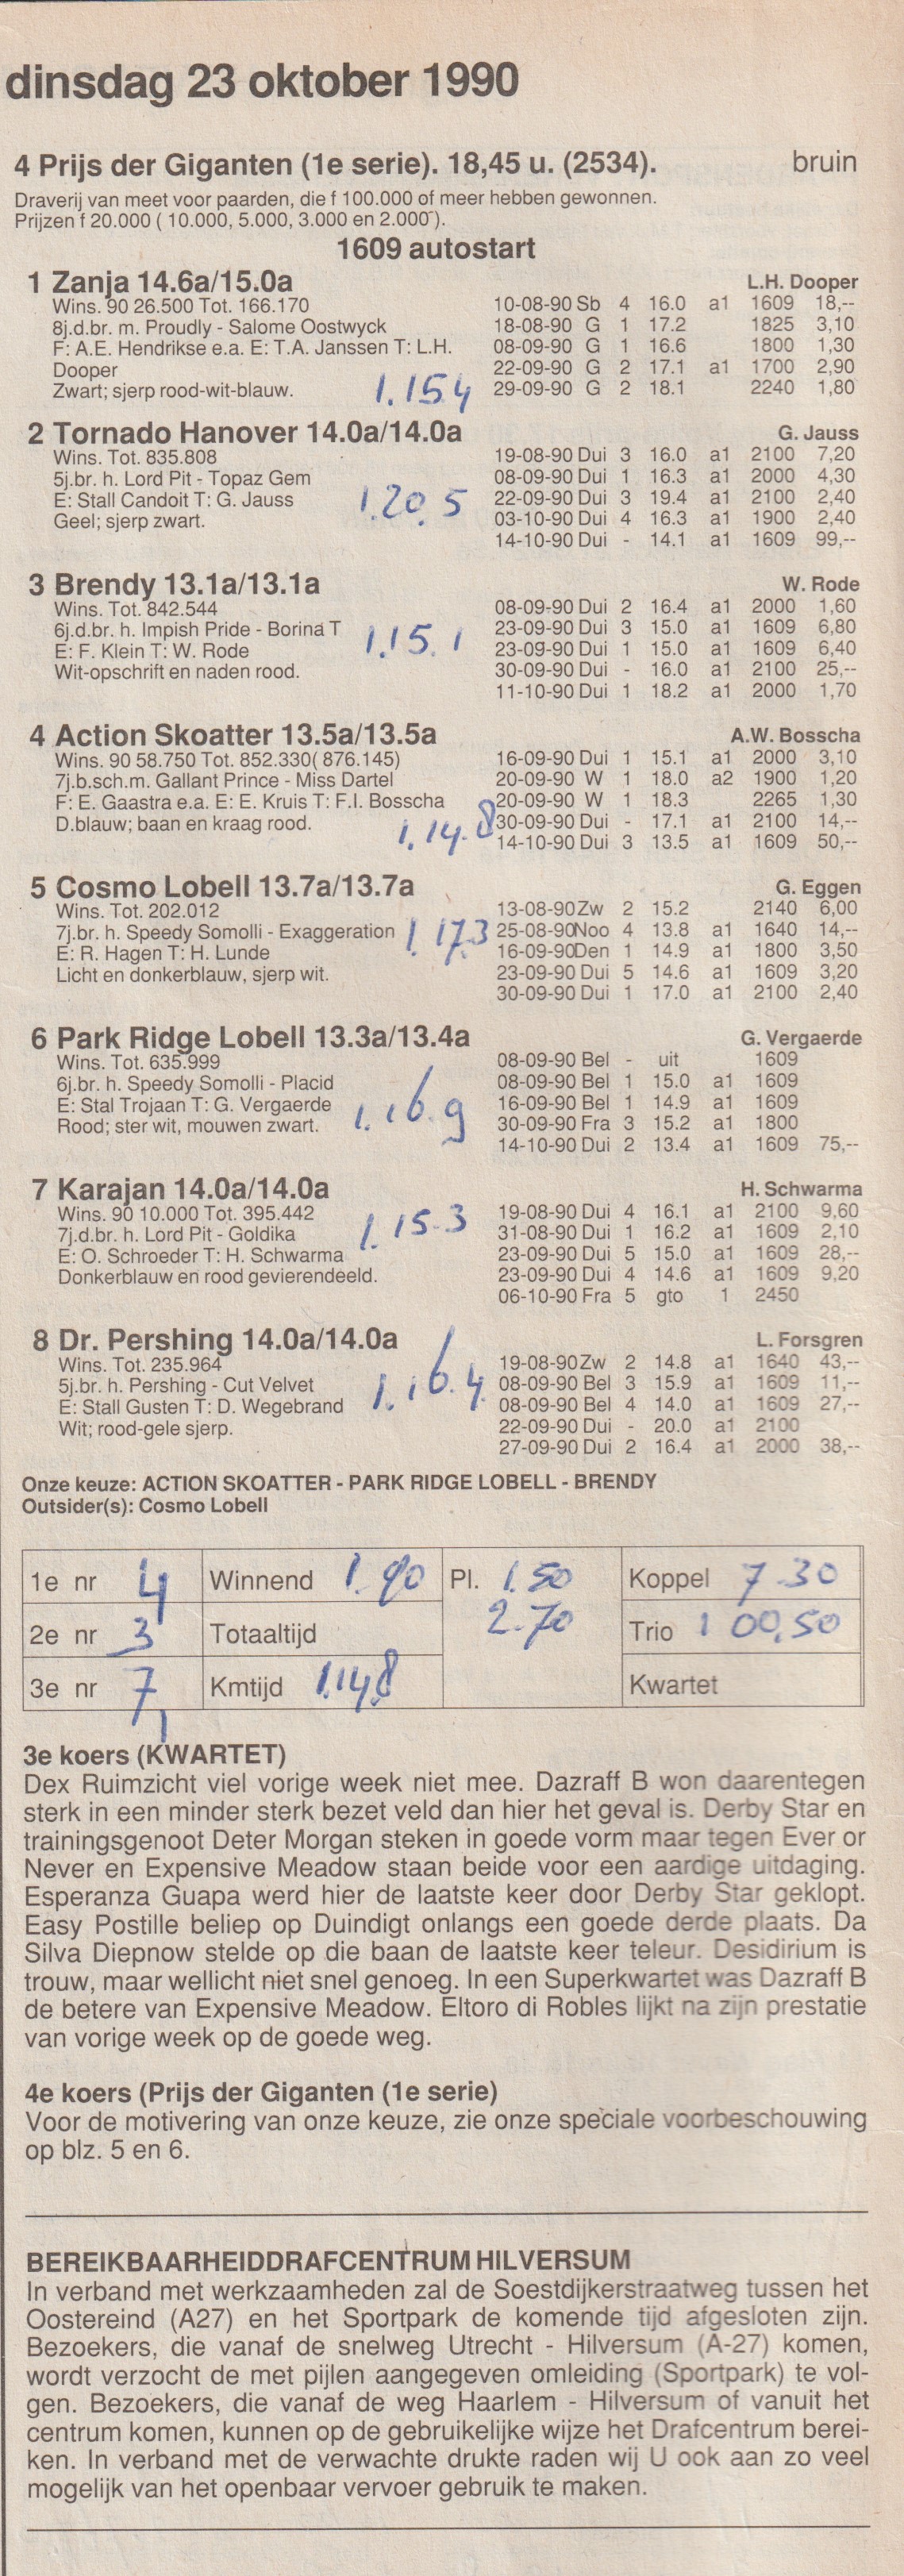 dinsdag 23 oktober 1990
4 Prijs der Giganten (1e serie). 18,45 u. (2534). bruin
Draverij van meet voor paarden, die f 100.000 of meer hebben gewonnen.
Prijzen f 20.000 ( 10.000, 5.000, 3.000 en 2.000 ).
1609 autostart
1 Zanja 14.6a/15.0a L.H. Dooper
Wins. 90 26.500 Tot. 166.170 10-08-90 Sb 4 16.0 a1 1609 18,--
8j.d.br. m. Proudly - Salome Oostwyck 18-08-90 G 1 17.2 1825 3,10
F: A.E. Hendrikse e.a. E: T.A. Janssen T: L.H. 08-09-90 G 1 16.6 1800 1,30
Dooper 22-09-90 G 2 17.1 a1 1700 2,90
Zwart; sjerp rood-wit-blauw. 1.15.4 29-09-90 G 2 18.1 2240 1,80
2 Tornado Hanover 14.0a/14.0a G. Jauss
Wins. Tot. 835.808 19-08-90 Dui 3 16.0 a1 2100 7,20
5j.br. h. Lord Pit - Topaz Gem 08-09-90 Dui 1 16.3 a1 2000 4,30
E: Stall Candoit T: G. Jauss 1.20.5 22-09-90 Dui 3 19.4 a1 2100 2,40
Geel; sjerp zwart. 03-10-90 Dui 4 16.3 a1 1900 2,40
14-10-90 Dui - 14.1 a1 1609 99,--
3 Brendy 13.1a/13.1a W. Rode
Wins. Tot. 842.544 08-09-90 Dui 2 16.4 a1 2000 1,60
6j.d.br. h. Impish Pride - Borina T 23-09-90 Dui 3 15.0 a1 1609 6,80
E: F. Klein T: W. Rode 1.15.1 23-09-90 Dui 1 15.0 a1 1609 6,40
Wit-opschrift en naden rood. 30-09-90 Dui - 16.0 a1 2100 25,--
11-10-90 Dui 1 18.2 a1 2000 1,70
4 Action Skoatter 13.5a/13.5a A.W. Bosscha
Wins. 90 58.750 Tot. 852.330( 876.145) 16-09-90 Dui 1 15.1 a1 2000 3,10
7j.b.sch.m. Gallant Prince - Miss Dartel 20-09-90 W 1 18.0 a2 1900 1,20
F: E. Gaastra e.a. E: E. Kruis T: F.I. Bosscha 20-09-90 W 1 18.3 2265 1,30
D.blauw; baan en kraag rood. 1.14.8 30-09-90 Dui - 17.1 a1 2100 14,--
14-10-90 Dui 3 13.5 a1 1609 50,--
5 Cosmo Lobell 13.7a/13.7a G. Eggen
Wins. Tot. 202.012 13-08-90Zw 2 15.2 2140 6,00
7j.br. h. Speedy Somolli - Exaggeration 1.17.3 25-08-90Noo 4 13.8 a1 1640 14,--
E: R. Hagen T: H. Lunde 16-09-90Den 1 14.9 a1 1800 3,50
Licht en donkerblauw, sjerp wit. 23-09-90 Dui 5 14.6 a1 1609 3,20
30-09-90 Dui 1 17.0 a1 2100 2,40
6 Park Ridge Lobell 13.3a/13.4a G. Vergaerde
Wins. Tot. 635.999 08-09-90 Bel - uit 1609
6j.br. h. Speedy Somolli - Placid 08-09-90 Bel 1 15.0 a1 1609
E: Stal Trojaan T: G. Vergaerde 1.16.9 16-09-90 Bel 1 14.9 a1 1609
Rood; ster wit, mouwen zwart. 30-09-90 Fra 3 15.2 a1 1800
14-10-90 Dui 2 13.4 a1 1609 75,--
7 Karajan 14.0a/14.0a H. Schwarma
Wins. 90 10.000 Tot. 395.442 1.15.3 19-08-90 Dui 4 16.1 a1 2100 9,60
7j.d.br. h. Lord Pit - Goldika 31-08-90 Dui 1 16.2 a1 1609 2,10
E: O. Schroeder T: H. Schwarma 23-09-90 Dui 5 15.0 a1 1609 28,--
Donkerblauw en rood gevierendeeld. 23-09-90 Dui 4 14.6 a1 1609 9,20
06-10-90 Fra 5 gto 1 2450
8 Dr. Pershing 14.0a/14.0a L. Forsgren
Wins. Tot. 235.964 19-08-90Zw 2 14.8 a1 1640 43,--
5j.br. h. Pershing - Cut Velvet 1.16.4 08-09-90 Bel 3 15.9 a1 1609 11,--
E: Stall Gusten T: D. Wegebrand 08-09-90 Bel 4 14.0 a1 1609 27,--
Wit; rood-gele sjerp. 22-09-90 Dui - 20.0 a1 2100
27-09-90 Dui 2 16.4 a1 2000 38,--
Onze keuze: ACTION SKOATTER - PARK RIDGE LOBELL - BRENDY
Outsider(s): Cosmo Lobell
1e nr 4 Winnend 1.90 Pl. 1.50 Koppel 7.30
2e nr 3 Totaaltijd 2.70 Trio 100,50
3e nr 7 Kmtijd 1.14.8 Kwartet
3e koers (KWARTET)
Dex Ruimzicht viel vorige week niet mee. Dazraff B won daarentegen
sterk in een minder sterk bezet veld dan hier het geval is. Derby Star en
trainingsgenoot Deter Morgan steken in goede vorm maar tegen Ever or
Never en Expensive Meadow staan beide voor een aardige uitdaging.
Esperanza Guapa werd hier de laatste keer door Derby Star geklopt.
Easy Postille beliep op Duindigt onlangs een goede derde plaats. Da
Silva Diepnow stelde op die baan de laatste keer teleur. Desidirium is
trouw, maar wellicht niet snel genoeg. In een Superkwartet was Dazraff B
de betere van Expensive Meadow. Eltoro di Robles lijkt na zijn prestatie
van vorige week op de goede weg.
4e koers (Prijs der Giganten (1e serie)
Voor de motivering van onze keuze, zie onze speciale voorbeschouwing
op blz. 5 en 6.
BEREIKBAARHEIDDRAFCENTRUM HILVERSUM
In verband met werkzaamheden zal de Soestdijkerstraatweg tussen het
Oostereind (A27) en het Sportpark de komende tijd afgesloten zijn.
Bezoekers, die vanaf de snelweg Utrecht - Hilversum (A-27) komen,
wordt verzocht de met pijlen aangegeven omleiding (Sportpark) te vol-
gen. Bezoekers, die vanaf de weg Haarlem - Hilversum of vanuit het
centrum komen, kunnen op de gebruikelijke wijze het Drafcentrum berei-
ken. In verband met de verwachte drukte raden wij U ook aan zo veel
mogelijk van het openbaar vervoer gebruik te maken.